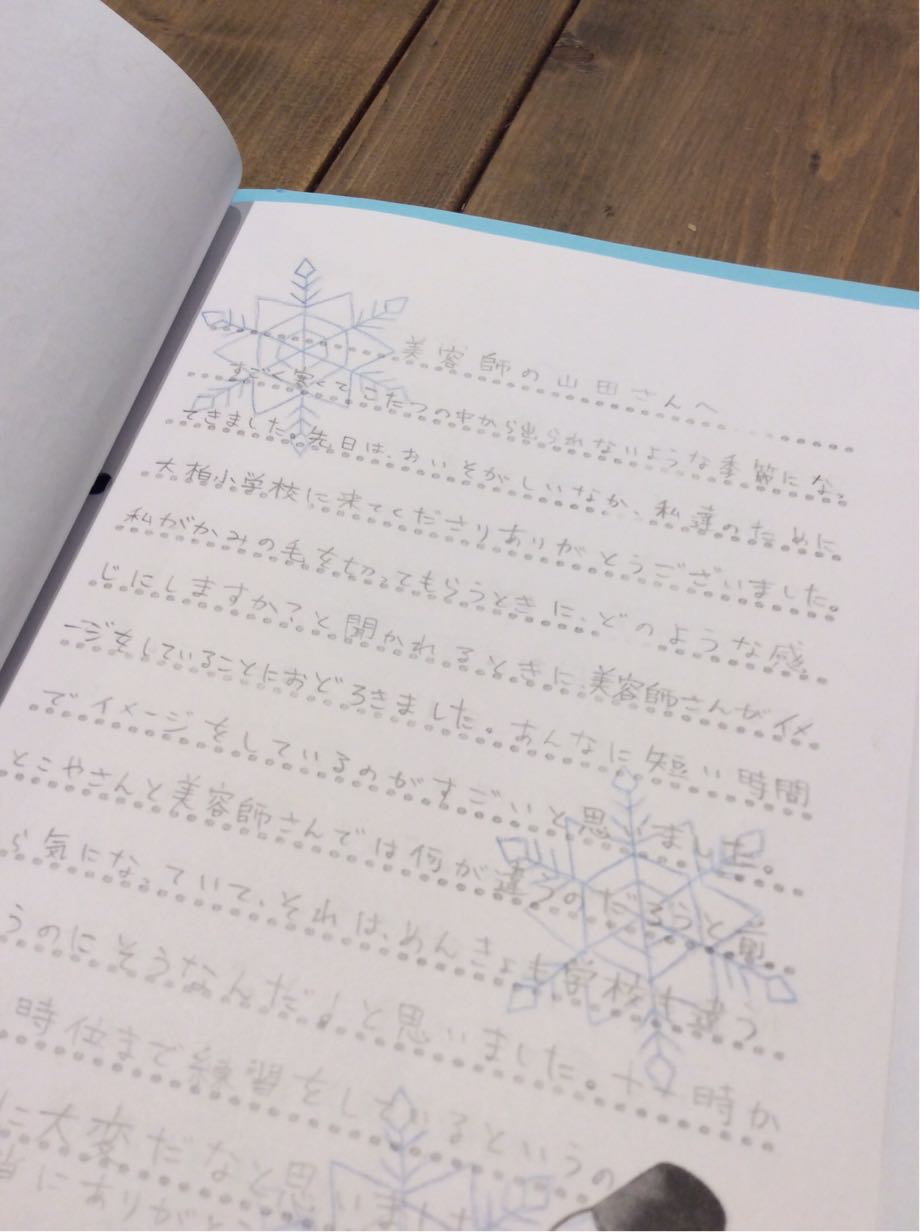 美容師の山田さんへ
すごく寒くてこたつの中から出られないような季節になっ
てきました。先日は、おいそがしいなか、私達のために
大柏小学校に来てくださりありがとうございました。
私がかみの毛を切ってもらうときに、どのような感
じにしますか?と聞かれるときに美容師さんがイメ
ージをしていることにおどろきました。あんなに短い時間
でイメージをしているのがすごいと思いました。
とこやさんと美容師さんでは何が違うのだろうと前
ら気になっていて、それは、めんきょも学校も違う
うのにそうなんだ!と思いました。十時か
時位まで練習をしているというの
に大変だなと思いました
にありがとう